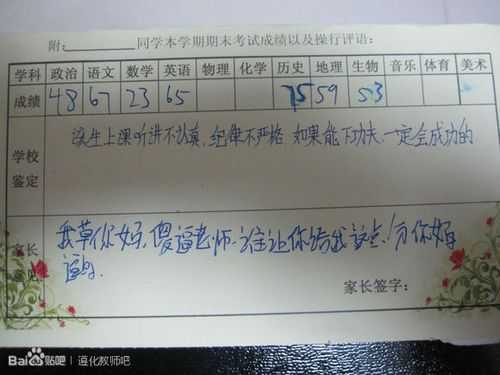 附:________同学本学期期末考试成绩以及操行评语:
学科 政治 语文 数学 英语 物理 化学 历史 地理 生物 音乐 体育 美术
成绩 48 67 23 65 75 59 53
该生上课听讲不认真,纪律不严格 如果能下功夫,一定会成功的
学校
鉴定
我草你妈,傻逼老师,谁让你给我这点分 你妈
逼的.
家长
意见
家长签字:
Bai du 贴吧 | 遵化教师吧